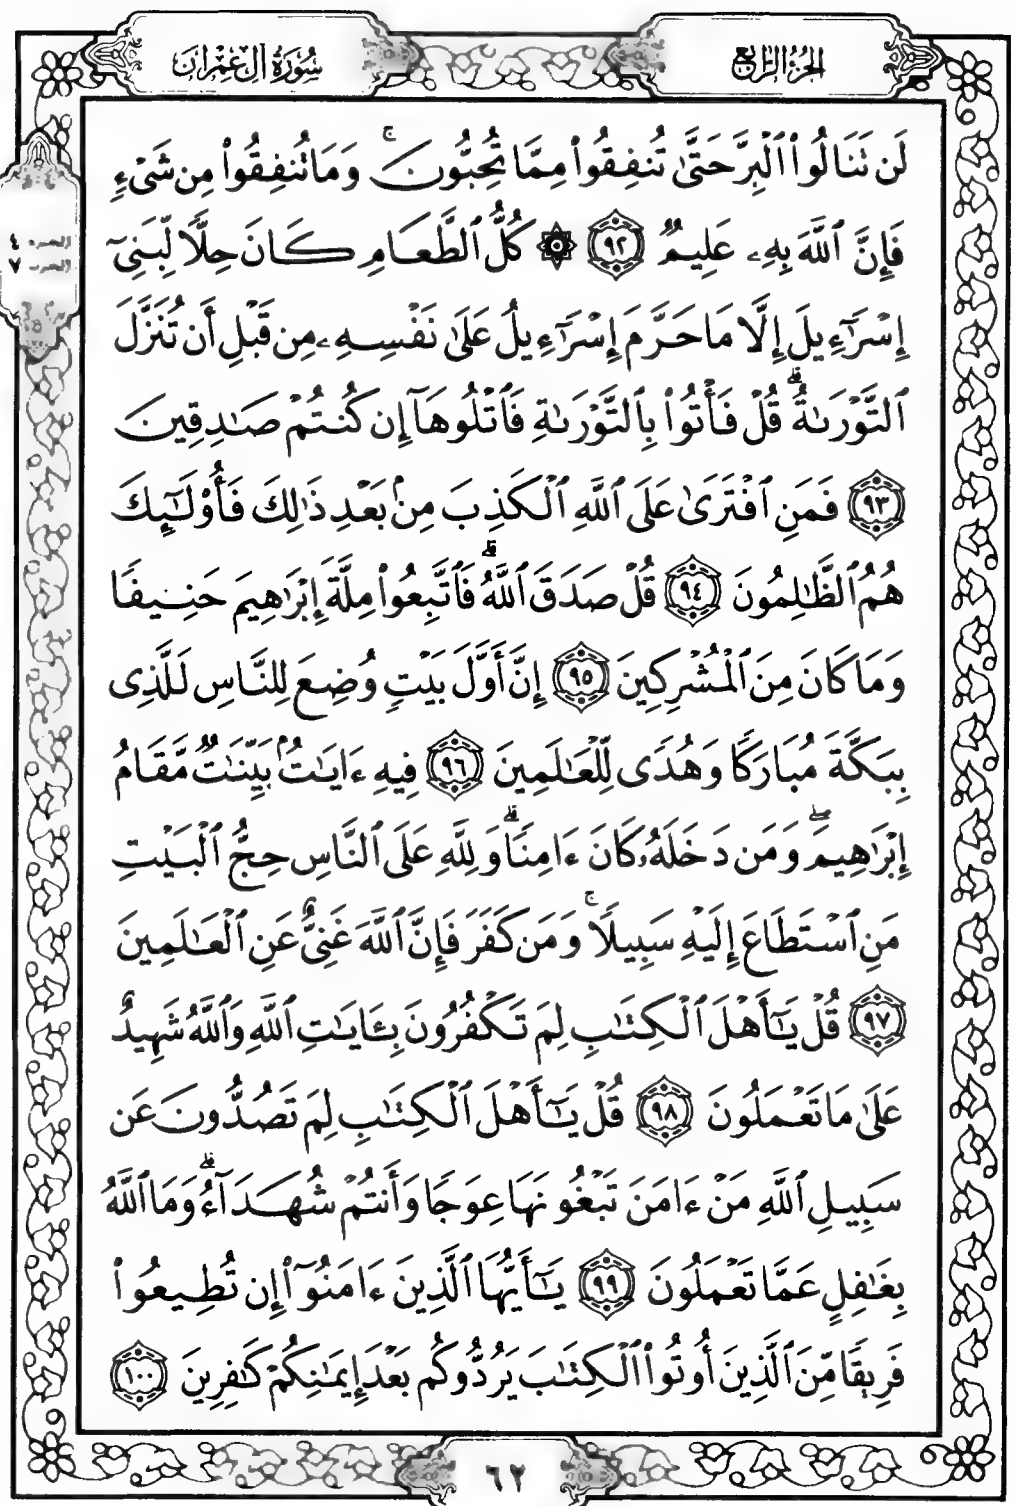 الجزء الرابع
سورة آل عمران
لَن تَنَالُوا۟ ٱلْبِرَّ حَتَّىٰ تُنفِقُوا۟ مِمَّا تُحِبُّونَ ۚ وَمَا تُنفِقُوا۟ مِن شَىْءٍ
فَإِنَّ ٱللَّهَ بِهِۦ عَلِيمٌ ٩٢ ۞ كُلُّ ٱلطَّعَامِ كَانَ حِلًّا لِّبَنِىٓ
الجزء ٤
الحزب ٧
إِسْرَٰٓءِيلَ إِلَّا مَا حَرَّمَ إِسْرَٰٓءِيلُ عَلَىٰ نَفْسِهِۦ مِن قَبْلِ أَن تُنَزَّلَ
ٱلتَّوْرَىٰةُ ۗ قُلْ فَأْتُوا۟ بِٱلتَّوْرَىٰةِ فَٱتْلُوهَآ إِن كُنتُمْ صَٰدِقِينَ
٩٣ فَمَنِ ٱفْتَرَىٰ عَلَى ٱللَّهِ ٱلْكَذِبَ مِنۢ بَعْدِ ذَٰلِكَ فَأُو۟لَٰٓئِكَ
هُمُ ٱلظَّٰلِمُونَ ٩٤ قُلْ صَدَقَ ٱللَّهُ ۗ فَٱتَّبِعُوا۟ مِلَّةَ إِبْرَٰهِيمَ حَنِيفًا
وَمَا كَانَ مِنَ ٱلْمُشْرِكِينَ ٩٥ إِنَّ أَوَّلَ بَيْتٍ وُضِعَ لِلنَّاسِ لَلَّذِى
بِبَكَّةَ مُبَارَكًا وَهُدًى لِّلْعَٰلَمِينَ ٩٦ فِيهِ ءَايَٰتٌۢ بَيِّنَٰتٌ مَّقَامُ
إِبْرَٰهِيمَ ۖ وَمَن دَخَلَهُۥ كَانَ ءَامِنًا ۗ وَلِلَّهِ عَلَى ٱلنَّاسِ حِجُّ ٱلْبَيْتِ
مَنِ ٱسْتَطَاعَ إِلَيْهِ سَبِيلًا ۚ وَمَن كَفَرَ فَإِنَّ ٱللَّهَ غَنِىٌّ عَنِ ٱلْعَٰلَمِينَ
٩٧ قُلْ يَٰٓأَهْلَ ٱلْكِتَٰبِ لِمَ تَكْفُرُونَ بِـَٔايَٰتِ ٱللَّهِ وَٱللَّهُ شَهِيدٌ
عَلَىٰ مَا تَعْمَلُونَ ٩٨ قُلْ يَٰٓأَهْلَ ٱلْكِتَٰبِ لِمَ تَصُدُّونَ عَن
سَبِيلِ ٱللَّهِ مَنْ ءَامَنَ تَبْغُونَهَا عِوَجًا وَأَنتُمْ شُهَدَآءُ ۗ وَمَا ٱللَّهُ
بِغَٰفِلٍ عَمَّا تَعْمَلُونَ ٩٩ يَٰٓأَيُّهَا ٱلَّذِينَ ءَامَنُوٓا۟ إِن تُطِيعُوا۟
فَرِيقًا مِّنَ ٱلَّذِينَ أُوتُوا۟ ٱلْكِتَٰبَ يَرُدُّوكُم بَعْدَ إِيمَٰنِكُمْ كَٰفِرِينَ ١٠٠
٦٢